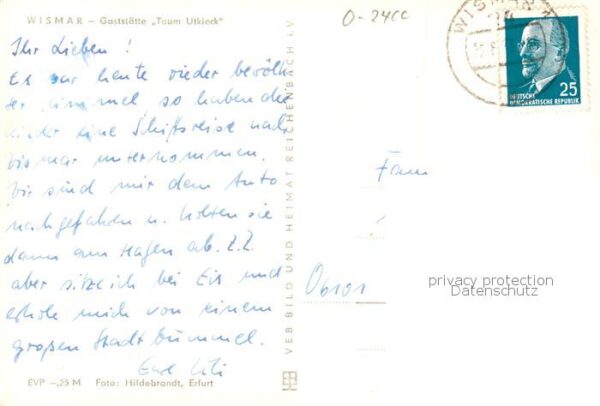 WISMAR – Gaststätte „Taum Utkieck"
0-2400
Ihr Lieben!
Es war heute wieder bewölk
ter Himmel, so haben die
Kinder eine Schiffsreise nach
Wismar unternommen.
Wir sind mir dem Auto
nachgefahren u. holten sie
dann am Hafen ab. Z. Z.
aber sitze ich bei Eis und
erhole mich von einem
großen Stadtbummel.
Eure
EVP –,25 M Foto: Hildebrandt, Erfurt
VEB BILD UND HEIMAT REICHENBACH i. V
WISMAR
25
DEUTSCHE
DEMOKRATISCHE REPUBLIK
Fam
privacy protection
Datenschutz